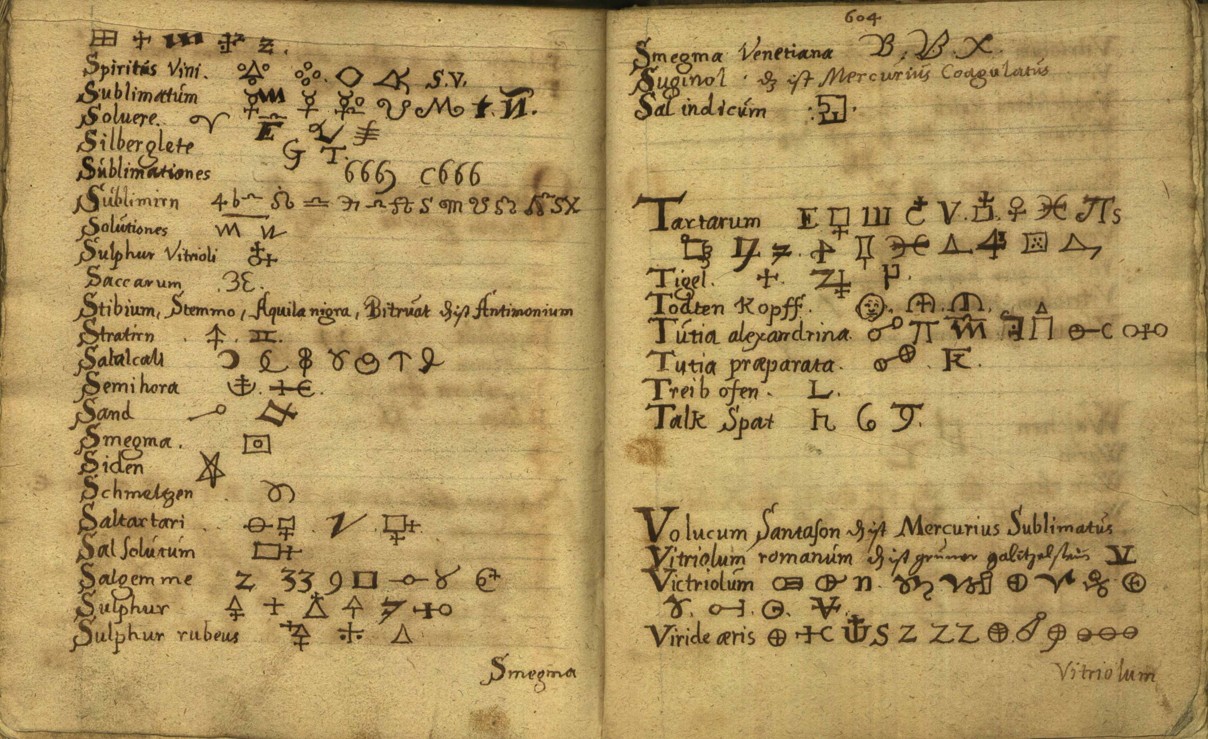 Spiritus Vini. S.V.
Sublimatum
Soluere.
Silberglete G T.
Sublimationes 666 C666
Sublimirn
Solutiones
Sulphur Vitrioli
Saccarum
Stibium, Stemmo, Aquila nigra, Bitruat ist Antimonium
Stratirn
Salalcali
Semihora
Sand
Smegma.
Siden
Schmeltzen
Saltartari
Sal solutum
Salgemme
Sulphur
Sulphur rubeus
Smegma
604
Smegma Venetiana B. B. X.
Suginol ist Mercurius Coagulatus
Sal indicum
Tartarum
Tigel.
Todten Kopff.
Tutia alexandrina.
Tutia præparata.
Treib ofen. L.
Talk Spat
Volucum Santason ist Mercurius Sublimatus
Vitriolum romanum ist gruner
Victriolum
Viride æris
Vitriolum